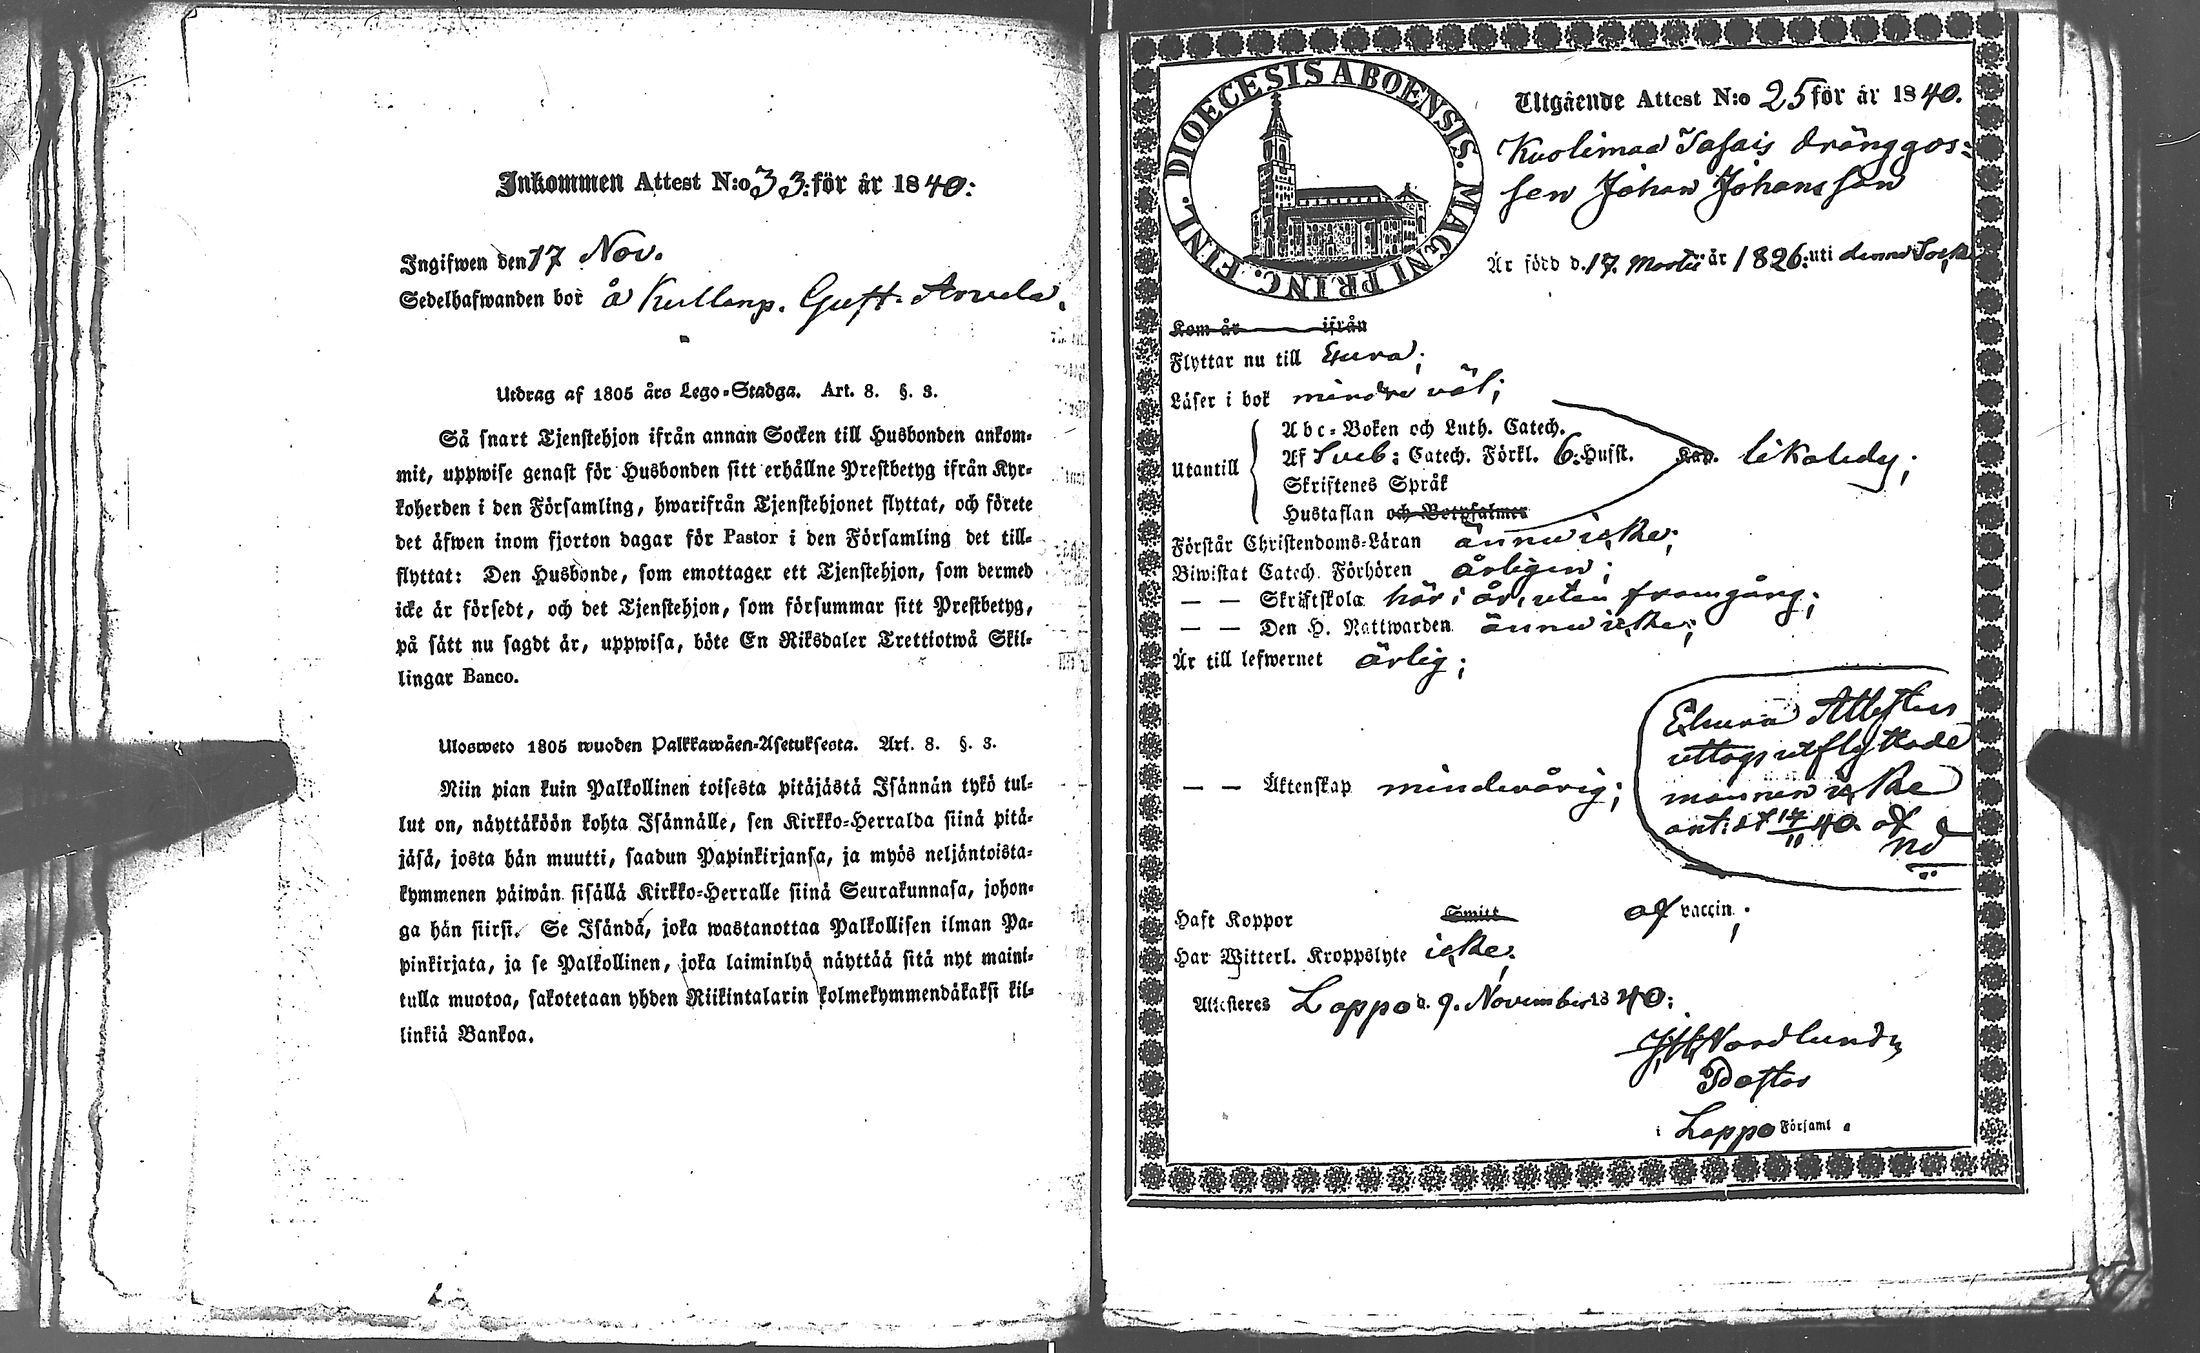 Inkommen Attest N:o 33: för år 1840:
Ingifwen den 17 Nov.
Sedelhafwanden bor å Kullanp. Gust. Arvela.
Utdrag af 1805 års Lego-Stadga. Art. 8. §. 3.
Så snart Tjenstehjon ifrån annan Socken till Husbonden ankom-
mit, uppwise genast för Husbonden sitt erhållne Prestbetyg ifrån Kyr-
koherden i den Församling, hwarifrån Tjenstehjonet flyttat, och förete
det äfwen inom fjorton dagar för Pastor i den Församling det till-
flyttat: Den Husbonde, som emottager ett Tjenstehjon, som dermed
icke är försedt, och det Tjenstehjon, som försummar sitt Prestbetyg,
på sätt nu sagdt är, uppwisa, böte En Riksdaler Trettiotwå Skil-
lingar Banco.
Ulosweto 1805 wuoden Palkkawäen-Asetuksesta. Art. 8. §. 3.
Niin pian kuin Palkollinen toisesta pitäjästä Isännän tykö tul-
lut on, näyttäköön kohta Isännälle, sen Kirkko-Herralda siinä pitä-
jäsä, josta hän muutti, saadun Papinkirjansa, ja myös neljäntoista-
kymmenen päiwän sisällä Kirkko-Herralle siinä Seurakunnasa, johon-
ga hän siirsi. Se Isändä, joka wastanottaa Palkollisen ilman Pa-
pinkirjata, ja se Palkollinen, joka laiminlyö näyttää sitä nyt maini-
tulla muotoa, sakotetaan yhden Riikintalarin kolmekymmendäkaksi kil-
linkiä Bankoa.
DIOECESIS ABOENSIS. MAGNI PRINC. FINL.
Utgående Attest N:o 25 för år 1840.
Kuolimaa Sasais dränggos-
sen Johan Johansson
Är född d. 17. Martii år 1826: uti denna Sock.
Kom år ifrån
Flyttar nu till Eura;
Läser i bok mindre väl;
Utantill
Abc-Boken och Luth. Catech.
Af Sveb: Catech. Förkl. 6: Hufst. Kap. likaledes;
Skriftenes Språk
Hustaflan och Botpsalmer
Förstår Christendoms-Läran ännu icke;
Biwistat Catech. Förhören årligen;
— — Skriftskola här i år, utan framgång;
— — Den H. Nattwarden ännu icke;
Är till lefwernet ärlig;
— — Äktenskap minderårig;
Attesten
uttogs utflyttade
mannen icke
17/11 40. af
Haft Koppor Smitt af vaccin;
Har Witterl. Kroppslyte icke.
Attesteres Loppo d. 9. November 1840:
Nordlund
Pastor
i Loppo Församl